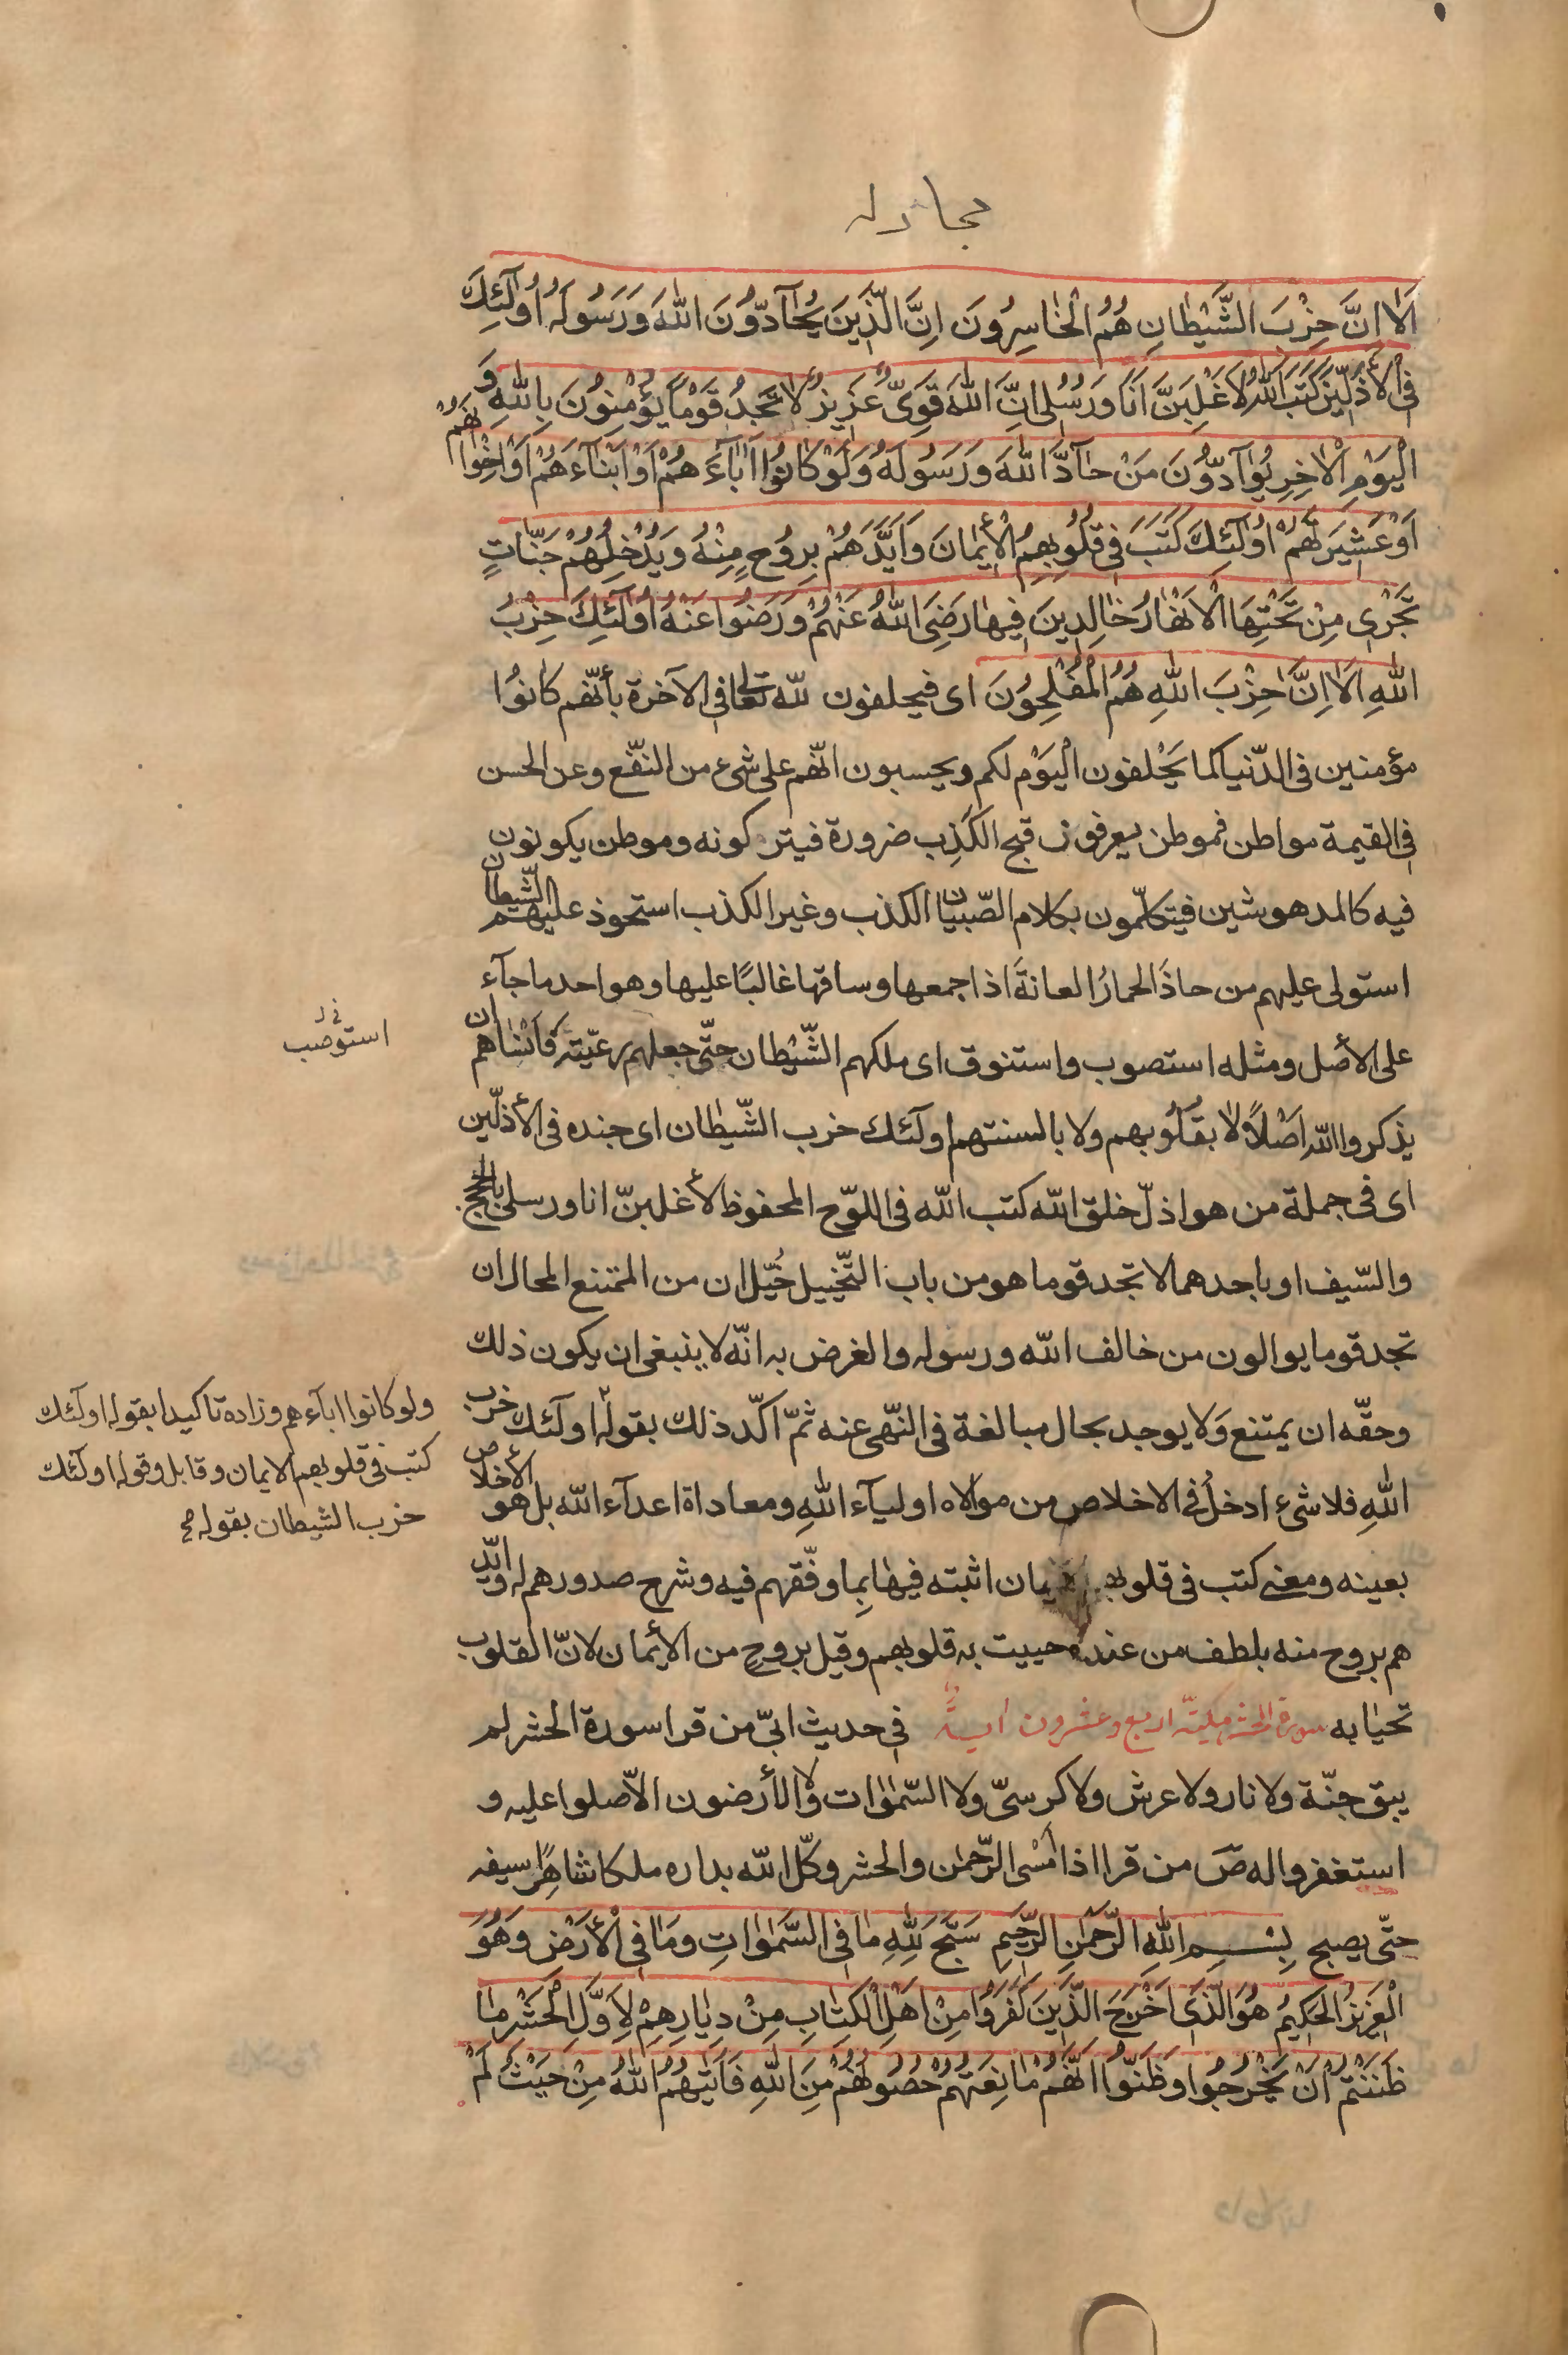 مجادله
اَلٰا اِنَّ حِزْبَ الشَّيْطٰانِ هُمُ الْخٰاسِرُونَ اِنَّ الَّذِينَ يُحٰآدُّونَ اللّٰهَ وَرَسُولَهُ اُولٰٓئِكَ
فِى الْاَذَلِّينَ كَتَبَ اللّٰهُ لَاَغْلِبَنَّ اَنَا وَرُسُلِى اِنَّ اللّٰهَ قَوِىٌّ عَزِيزٌ لٰا تَجِدُ قَوْمًا يُؤْمِنُونَ بِاللّٰهِ وَ
الْيَوْمِ الْاٰخِرِ يُوٰآدُّونَ مَنْ حٰآدَّ اللّٰهَ وَرَسُولَهُ وَلَوْ كٰانُوا اٰبٰآءَهُمْ اَوْ اَبْنٰآءَهُمْ اَوْ اِخْوٰانَهُمْ
اَوْ عَشِيرَتَهُمْ اُولٰٓئِكَ كَتَبَ فِى قُلُوبِهِمُ الْاِيمٰانَ وَاَيَّدَهُمْ بِرُوحٍ مِنْهُ وَيُدْخِلُهُمْ جَنّٰاتٍ
تَجْرِى مِنْ تَحْتِهَا الْاَنْهٰارُ خٰالِدِينَ فِيهٰا رَضِىَ اللّٰهُ عَنْهُمْ وَرَضُوا عَنْهُ اُولٰٓئِكَ حِزْبُ
اللّٰهِ اَلٰا اِنَّ حِزْبَ اللّٰهِ هُمُ الْمُفْلِحُونَ اى فيحلفون للّه تعالى فى الآخرة بأنّهم كانُوا
مؤمنين فى الدّنيا كما يَحْلفون الْيَوْم لكم ويحسبون انّهم على شىء من النّفع وعن الحسن
فى القيمة مواطن فموطن يعرفون قبح الكَذِب ضرورة فيتركونه وموطن يكونون
فيه كالمدهوشين فيتكلّمون بكلام الصّبيان الكذب وغير الكذب استحوذ عليهم الشّيطان
استولى عليهم من حاذَ الحمارُ العانةَ اذا جمعها وساقها غالبًا عليها وهو احد ما جآء
على الأصل ومثله استصوب واستنوق اى ملكهم الشّيْطان حتّى جعلهم رعيّته فأنساهم ان
يذكروا اللّه اصْلًا لا بقُلُوبهم ولا بالسنتهم اولٓئك حزب الشّيطان اى جنده فى الأذلّين
اى فى جملة من هو اذلّ خلق اللّه كتب اللّه فى اللوّح المحفوظ لأغلبنّ انا ورسلى بالحجج
والسّيف او باحدهما لا تجد قوما هو من باب التّخييل خُيّل ان من الممتنع المحال ان
تجد قوما يوالون من خالف اللّه ورسوله والغرض به انّه لا ينبغى ان يكون ذلك
وحقّه ان يمتنع وَلا يوجد بحال مبالغة فى النّهى عنه ثمّ اكّد ذلك بقوله اولٓئك حزب
اللّهِ فلا شىء ادخلُ فى الاخلاص من موالاه اوليآء اللّهِ ومعاداة اعدآء اللّه بل هو الأخلاص
بعينه ومعنى كتب فى قلوبهم يمان اثبته فيهٰا بِما وفّقهم فيه وشرح صدورهم له وايّد
هم بروح منه بلطف من عنده حييت به قلوبهم وقيل بروحٍ من الأيمان لانّ القلوب
تحيا به سورة الحشر مكيّة اربع وعشرون اية فى حديث ابىّ من قرا سورة الحشر لم
يبق جنّة ولا نار ولا عرش ولا كرسىّ ولا السّمٰوات ولا الأرضون الّا صلوا عليه و
استغفروا له صَ من قرا اذا أمسٰى الرّحمٰن والحشر وكّل اللّه بداره ملكا شاهِرًا سيفه
حتّى يصبح بِسْمِ اللّٰهِ الرَّحْمٰنِ الرَّحِيمِ سَبَّحَ لِلّٰهِ مٰا فِى السَّمٰوٰاتِ وَمٰا فِى الْاَرْضِ وَهُوَ
الْعَزِيزُ الْحَكِيمُ هُوَ الَّذِى اَخْرَجَ الَّذِينَ كَفَرُوا مِنْ اَهْلِ الْكِتٰابِ مِنْ دِيٰارِهِمْ لِاَوَّلِ الْحَشْرِ مٰا
ظَنَنْتُمْ اَنْ يَخْرُجُوا وَظَنُّوا اَنَّهُمْ مٰانِعَتُهُمْ حُصُونُهُمْ مِنَ اللّٰهِ فَاَتٰيهُمُ اللّٰهُ مِنْ حَيْثُ لَمْ
استوصب
ولو كانوا ابآءهم وزاده تاكيدا بقوله اولٓئك
كتب فى قلوبهم الايمان وقابل وقوله اولٓئك
حزب الشيطان بقوله صح